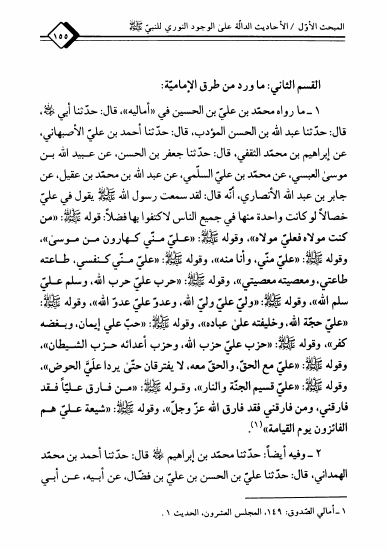 المبحث الأوّل / الأحاديث الدالّة على الوجود النوري للنبيّ ﷺ
١٥٥
القسم الثاني: ما ورد من طرق الإماميّة:
١ ـ ما رواه محمّد بن عليّ بن الحسين في «أماليه»، قال: حدّثنا أبي ﷺ،
قال: حدّثنا عبد الله بن الحسن المؤدب، قال: حدّثنا أحمد بن عليّ الأصبهاني،
عن إبراهيم بن محمّد الثقفي، قال: حدّثنا جعفر بن الحسن، عن عبيد الله بـن
موسىٰ العبسي، عن محمد بن عليّ السلّمي، عن عبد الله بن محمد بن عقيل، عن
جابر بن عبد الله الأنصاري، أنّه قال: لقد سمعت رسول الله ﷺ يقول في عليّ
خصالاً لو كانت واحدة منها في جميع الناس لاكتفوا بها فضلاً: قوله ﷺ: «من
كنت مولاه فعليّ مولاه»، وقوله ﷺ: «عـليّ مـنّي كـهارون مـن مـوسىٰ»،
وقوله ﷺ: «عليّ منّي، وأنا منه»، وقوله ﷺ: «عليّ مـنّي كـنفسي، طـاعته
طاعتي، ومعصيته معصيتي»، وقوله ﷺ: «حرب عليّ حرب الله، وسلم عـليّ
سلم الله»، وقوله ﷺ: «وليّ عليّ وليّ الله، وعدوّ عليّ عدوّ الله»، وقوله ﷺ:
«عليّ حجّة الله، وخليفته علىٰ عباده»، وقوله ﷺ: «حبّ علي إيمان، وبـغضه
كفر»، وقوله ﷺ: «حزب عليّ حزب الله، وحزب أعدائه حـزب الشـيطان»،
وقوله ﷺ: «عليّ مع الحق، والحق معه، لا يفترقان حتّىٰ يردا علَيَّ الحوض»،
وقوله ﷺ: «عليّ قسيم الجنّة والنار»، وقـوله ﷺ: «مـن فـارق عـليّاً فـقد
فارقني، ومن فارقني فقد فارق الله عزّ وجلّ»، وقوله ﷺ: «شيعة عـليّ هـم
الفائزون يوم القيامة»(١).
٢ ـ وفيه أيضاً: حدّثنا محمّد بن إبراهيم قال: حدّثنا أحمد بن محمّد
الهمداني، قال: حدّثنا عليّ بن الحسن بن عليّ بن فضّال، عن أبيه، عن أبي
١ ـ أمالي الصّدوق: ١٤٩، المجلس العشرون، الحديث ١.